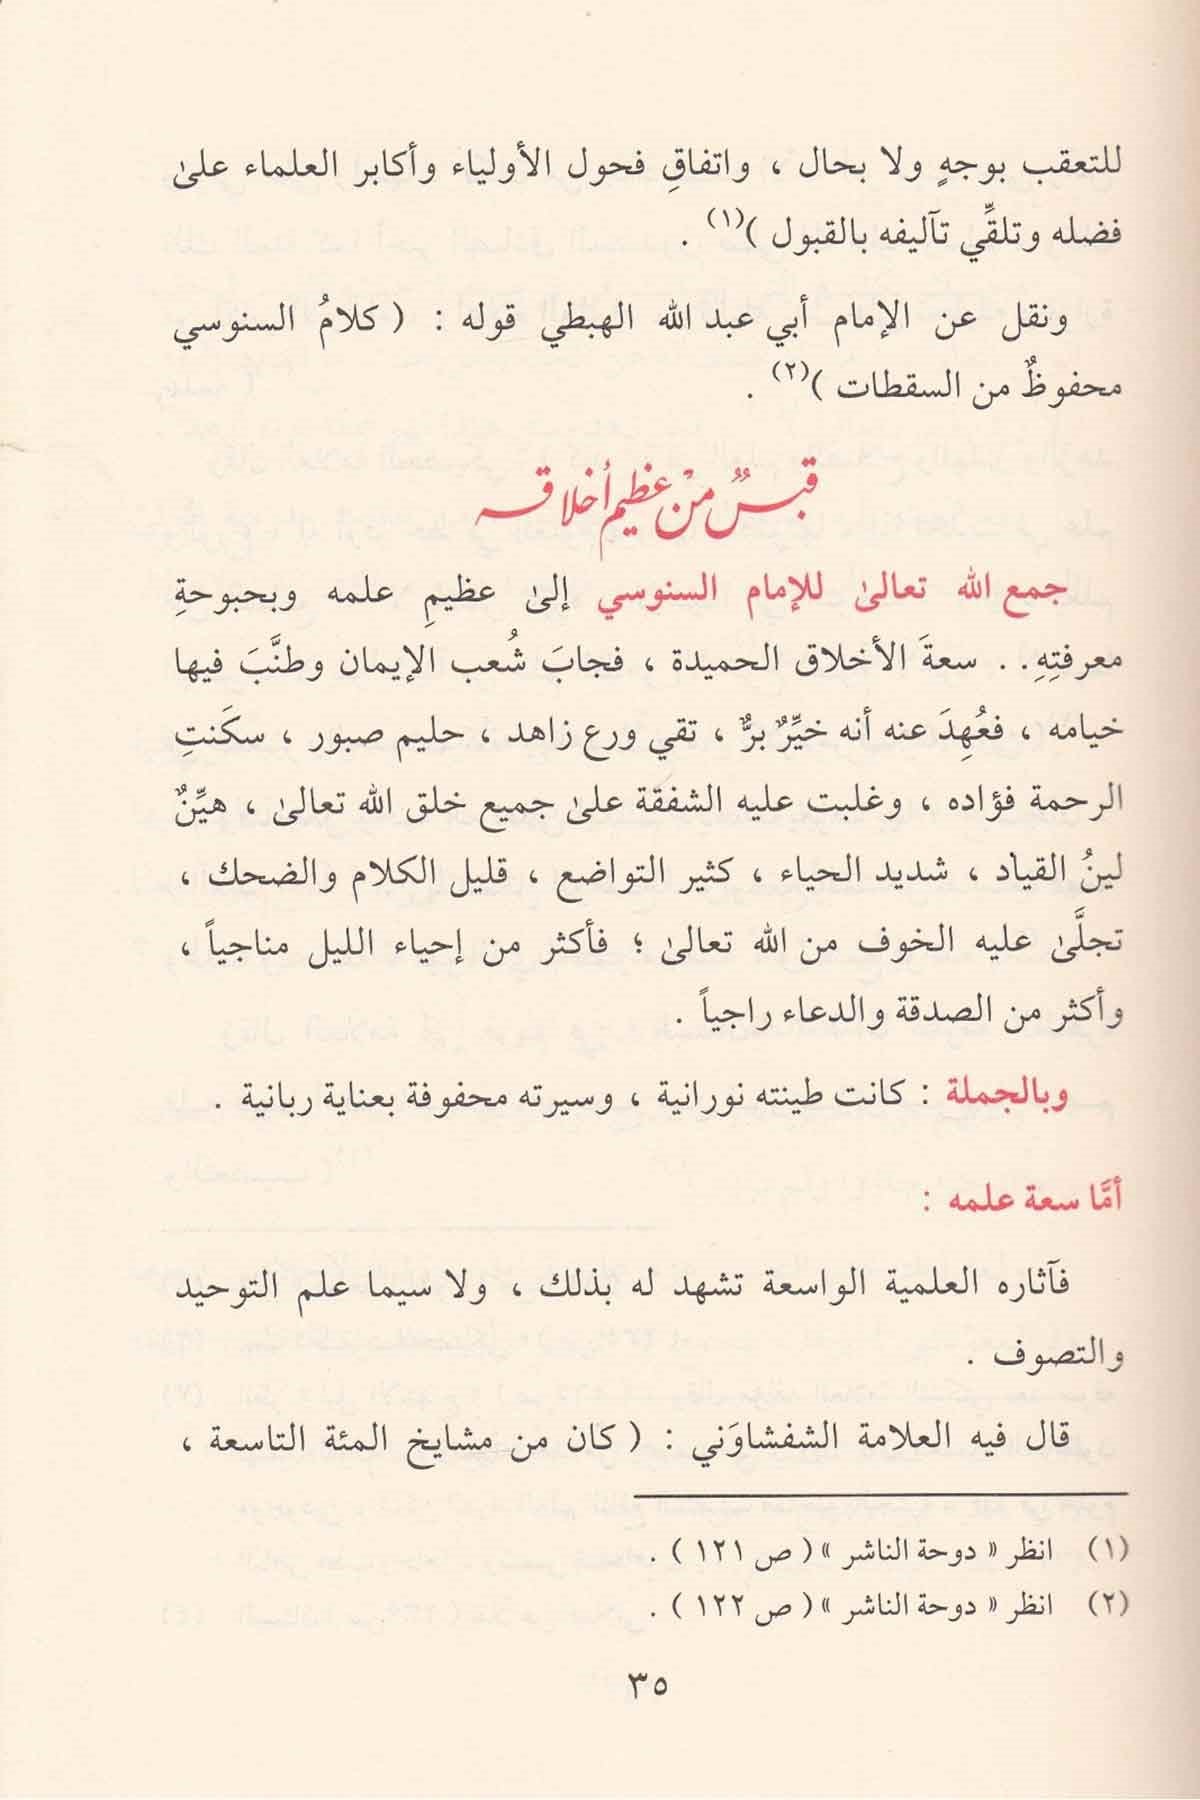 للتعقب بوجهٍ ولا بحال ، واتفاقِ فحول الأولياء وأكابر العلماء علىٰ
فضله وتلقِّي تآليفه بالقبول )(١) .
ونقل عن الإمام أبي عبد الله الهبطي قوله : ( كلامُ السنوسي
محفوظٌ من السقطات )(٢) .
قبسٌ من عظيم أخلاقه
جمع الله تعالىٰ للإمام السنوسي إلىٰ عظيمِ علمه وبحبوحةِ
معرفتِهِ . . سعةَ الأخلاق الحميدة ، فجابَ شُعب الإيمان وطنَّبَ فيها
خيامه ، فعُهِدَ عنه أنه خيِّرٌ برٌّ ، تقي ورع زاهد ، حليم صبور ، سكَنتِ
الرحمة فؤاده ، وغلبت عليه الشفقة علىٰ جميع خلق الله تعالىٰ ، هيِّنٌ
لينُ القياد ، شديد الحياء ، كثير التواضع ، قليل الكلام والضحك ،
تجلَّىٰ عليه الخوف من الله تعالىٰ ؛ فأكثر من إحياء الليل مناجياً ،
وأكثر من الصدقة والدعاء راجياً .
وبالجملة : كانت طينته نورانية ، وسيرته محفوفة بعناية ربانية .
أمَّا سعة علمه :
فآثاره العلمية الواسعة تشهد له بذلك ، ولا سيما علم التوحيد
والتصوف .
قال فيه العلامة الشفشاوَني : ( كان من مشايخ المئة التاسعة ،
(١) انظر « دوحة الناشر » ( ص ١٢١ ) .
(٢) انظر « دوحة الناشر » ( ص ١٢٢ ) .
٣٥